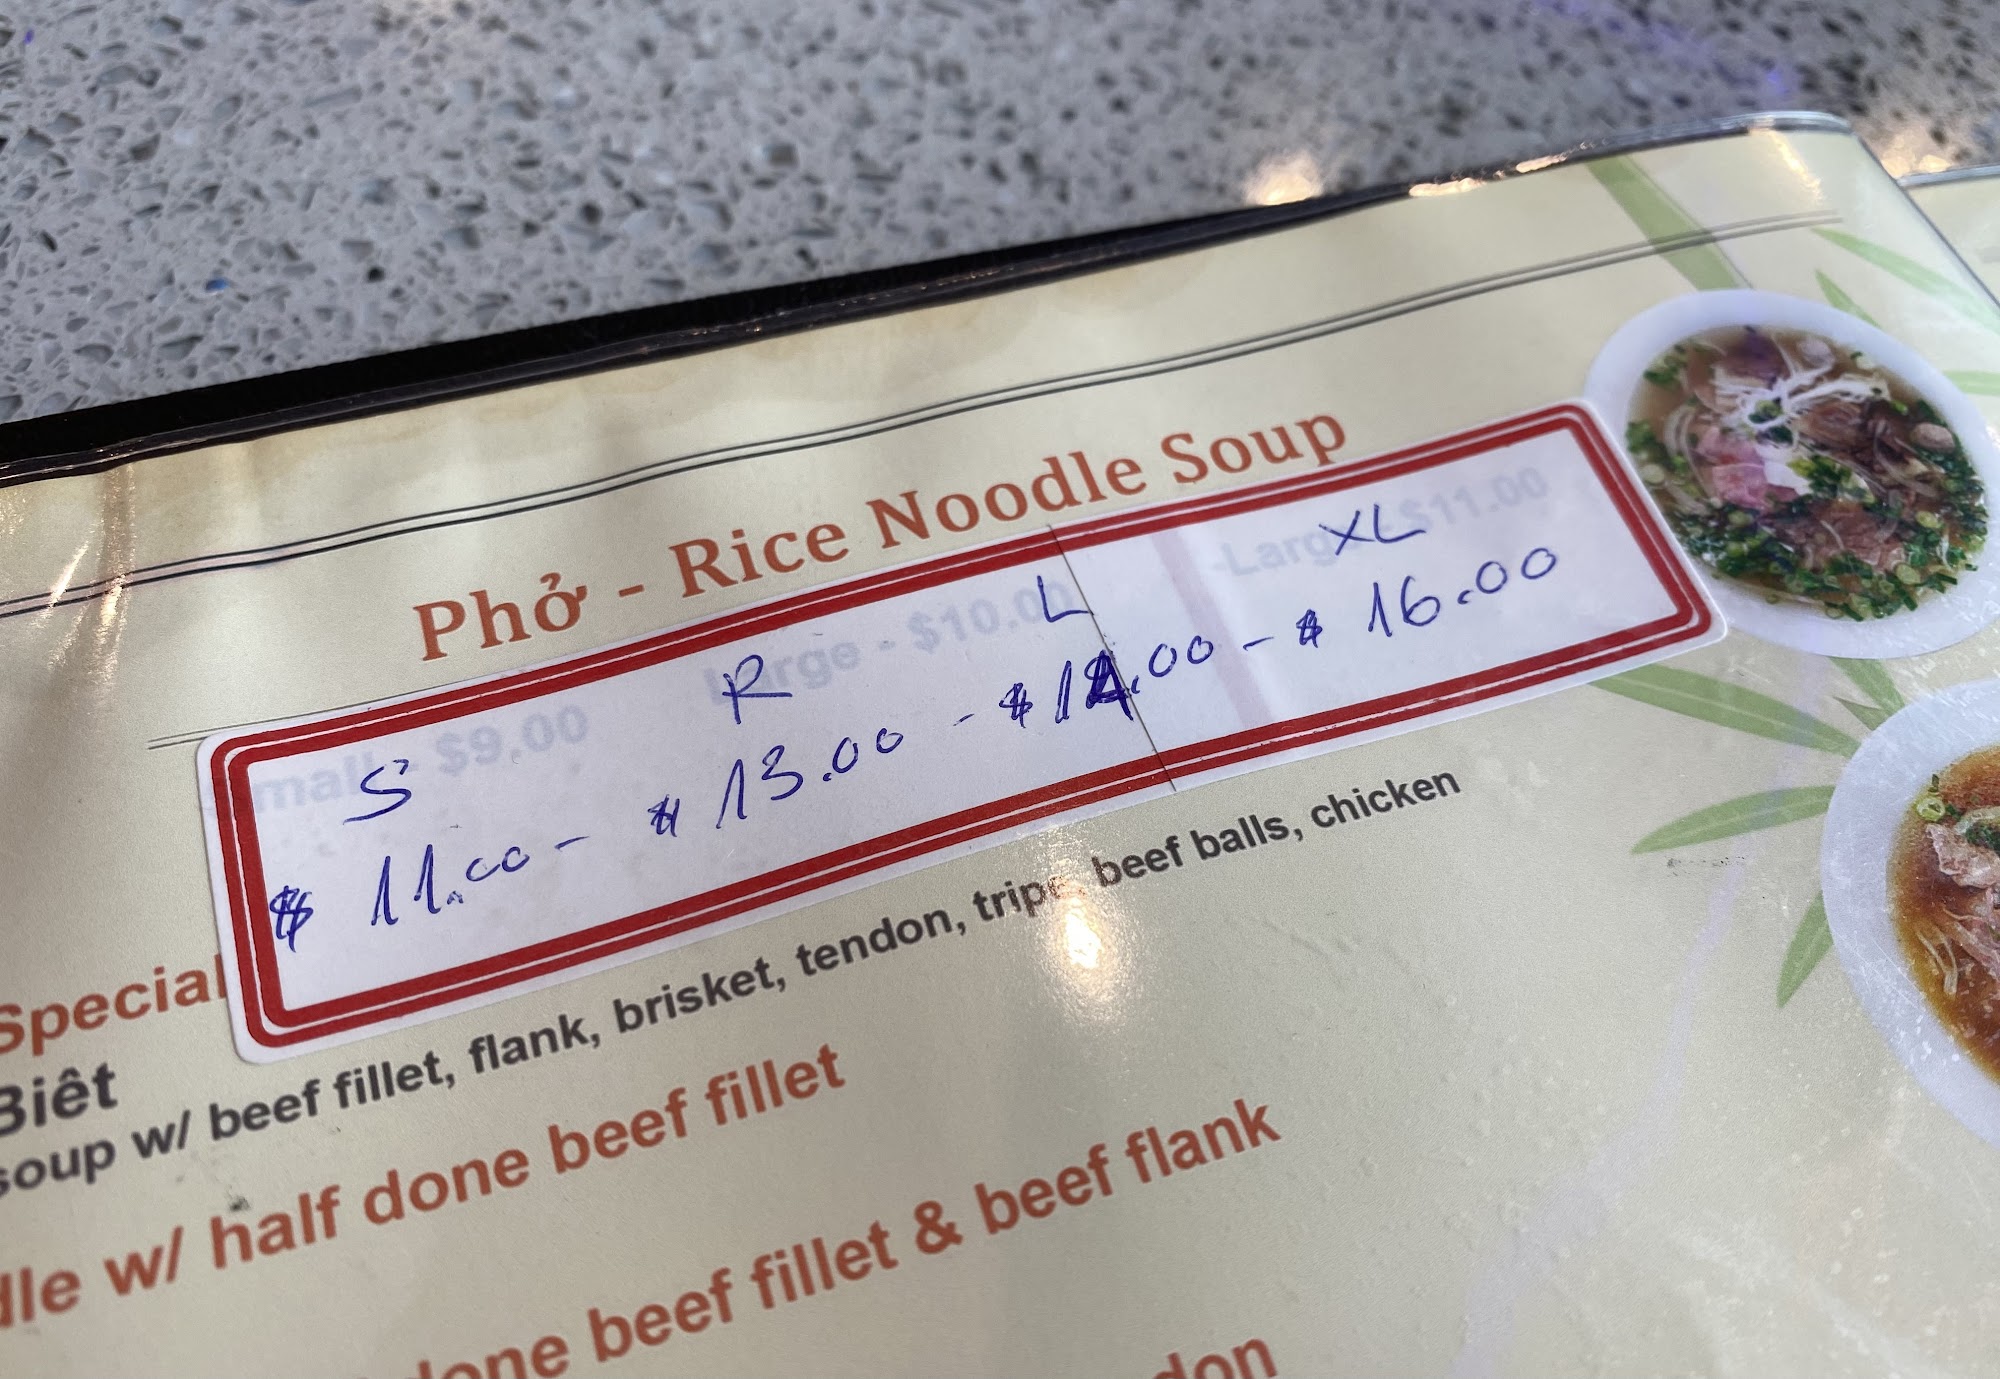 Phở - Rice Noodle Soup
Small - $9.00 Large - $10.00 -Large - $11.00
S R L XL
$ 11.00 - $ 13.00 - $ 14.00 - $ 16.00
Special
Biêt
soup w/ beef fillet, flank, brisket, tendon, tripe, beef balls, chicken
w/ half done beef fillet
done beef fillet & beef flank